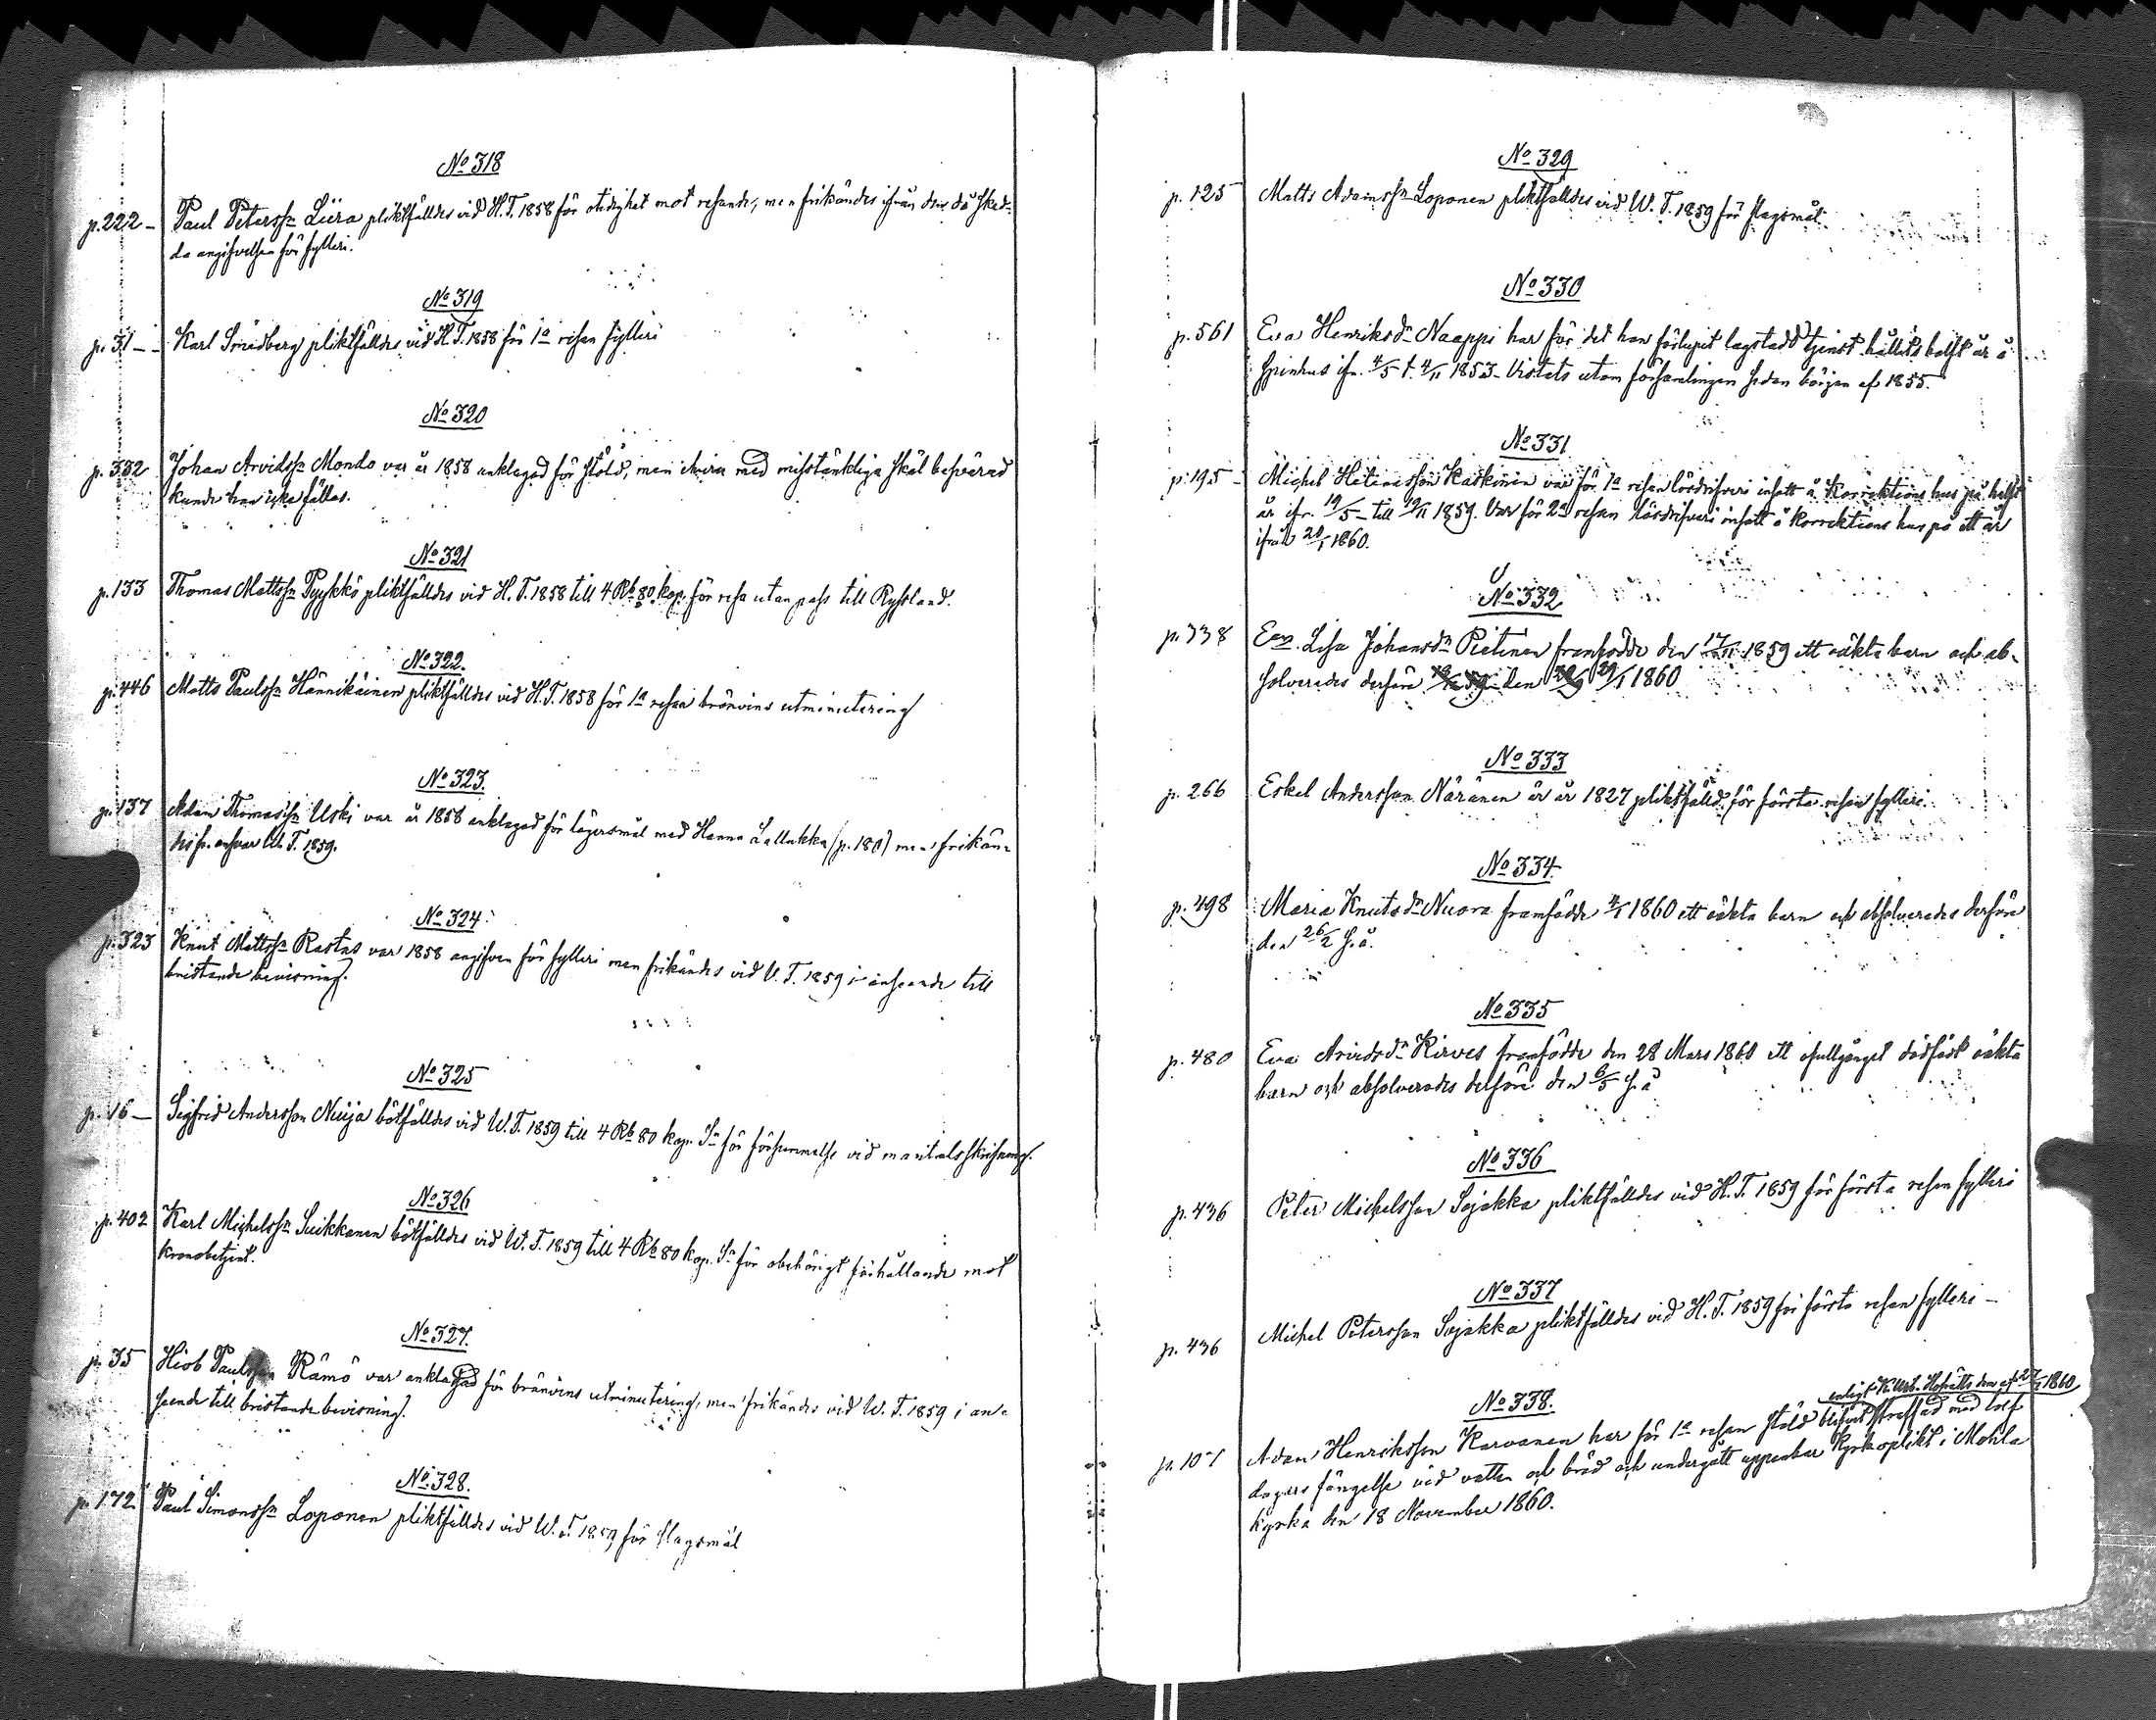 No 318
p. 222 – Paul Peterssn Liira pliktfälldes vid H.T. 1858 för otidighet mot resande, men frikändes ifrån den då sked-
da angifvelsen för fylleri.
No 319
p. 31 – Karl Smedberg pliktfälldes vid H.T. 1858 för 1a resan fylleri
No 320
p. 332 Johan Arvidssn Mondo var år 1858 anklagad för stöld, men med misstänkliga skäl besvärad
kunde han icke fällas.
No 321
p. 133 Thomas Mattssn Pyykkö pliktfälldes vid H.T. 1858 till 4 Rb 80 kop. för resa utan pass till Ryssland.
No 322.
p. 446 Matts Paulssn Hännikäinen pliktfälldes vid H.T. 1858 för 1a resan bränvins utminutering
No 323.
p. 137 Adam Thomassn Uski var år 1858 anklagad för lägersmål med Hanna Lallukka (p. 180) men frikän-
W.T. 1859.
No 324.
p. 323 Knut Mattssn Rastas var 1858 angifven för fylleri men frikändes vid V.T. 1859 i anseende till
bristande bevisning.
No 325
p. 16 – Sigfrid Andersson Nuija bötfälldes vid W.T. 1859 till 4 Rb 80 kop. Sr för försummelse vid mantalsskrifning.
No 326
p. 402 Karl Michelssn Suikkanen bötfälldes vid W.T. 1859 till 4 Rb 80 kop. Sr för obehörigt förhållande mot
kronobetjent.
No 327.
p. 35 Hiob Paulsson Rämö var anklagad för bränvins utminutering, men frikändes vid W.T. 1859 i an-
seende till bristande bevisning.
No 328.
p. 172 Paul Simonssn Loponen pliktfälldes vid W.T. 1859 för slagsmål
No 329
p. 125 Matts Adamssn Loponen pliktfälldes vid W.T. 1859 för slagsmål.
No 330
p. 561 Eva Henriksdr Naappi har för det hon förlupit lagstadd tjenst hållits halft år å
spinhus ifr. 4/5 t. 4/11 1853. Vistats utom församlingen sedan början af 1855.
No 331
p. 195 – Michel Kaskinen var för 1a resan lösdrifveri insatt å Korrektions hus på halft
år ifr. 19/5 – till 19/11 1859. Var för 2a resan lösdrifveri insatt å Korrektions hus på ett år
ifrån 20/1 1860.
No 332
p. 338 Eva Lisa Johansdr Pietinen framfödde den 17/11 1859 ett oäkta barn och ab-
solverades derföre den 29/1 1860
No 333
p. 266 Eskel Andersson Näränen är år 1827 pliktfälld för första resan fylleri.
No 334.
p. 498 Maria Knutsdr Nuora framfödde 4/1 1860 ett oäkta barn och absolverades derföre
den 26/2 s.å.
No 335
p. 480 Eva Arvidsdr Kirves framfödde den 28 Mars 1860 ett ofullgånget dödfödt oäkta
barn och absolverades derföre den 6/5 s.å
No 336
p. 436 Peter Michelsson Sojakka pliktfälldes vid H.T. 1859 för första resan fylleri
No 337
p. 436 Michel Petersson Sojakka pliktfälldes vid H.T. 1859 för första resan fylleri –
No 338.
enligt K. Wib. Hofrätts dom af 1860
p. 107 Adam Henriksson Karvanen har för 1a resan stöld blifvit straffad med tolf
dagars fängelse vid vatten och bröd och undergått uppenbar Kyrkoplikt i Mohla
kyrka den 18 November 1860.